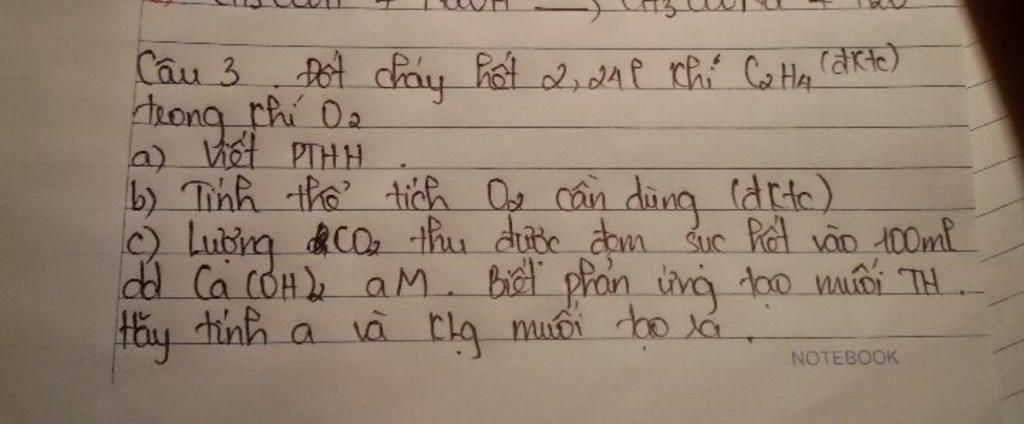 Câu 3. Đốt cháy hết 2,24l khí C₂H₄ (đktc)
trong khí O₂
a) Viết PTHH.
b) Tính thể tích O₂ cần dùng (đktc)
c) Lượng CO₂ thu được đem sục hết vào 100ml
dd Ca(OH)₂ aM. Biết phản ứng tạo muối TH.
Hãy tính a và klg muối tạo ra.
NOTEBOOK